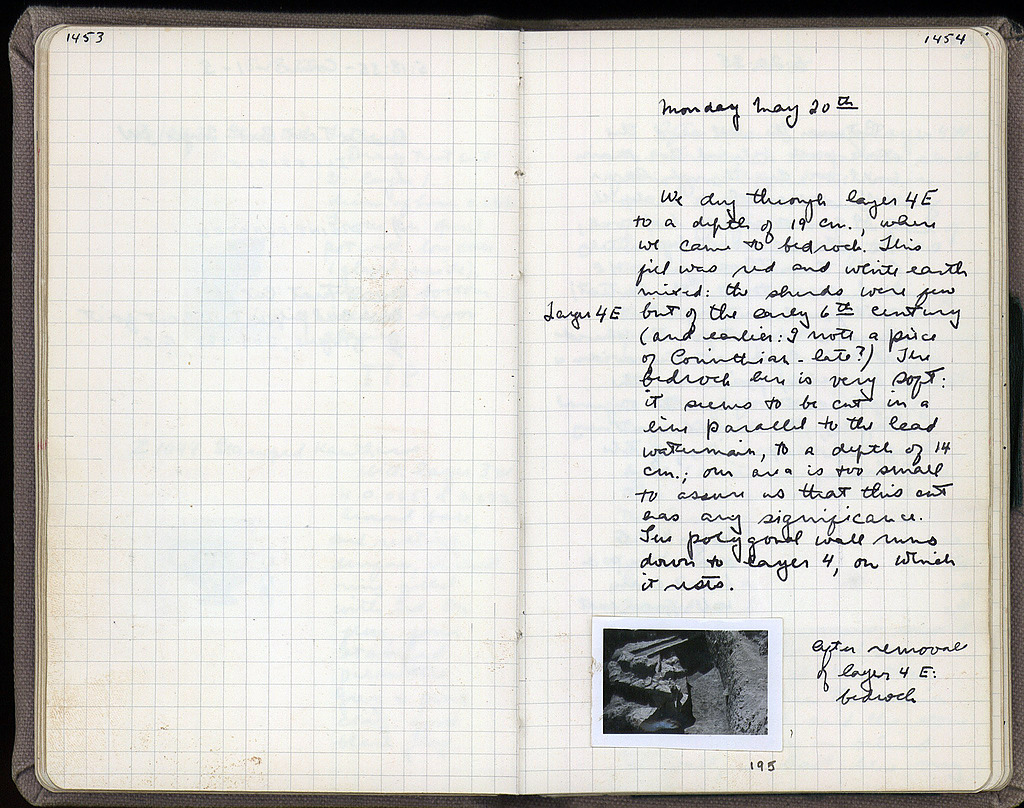 1453
1454
Monday May 20th
We dug through layer 4E
to a depth of 19 cm., where
we came to bedrock. This
fill was red and white earth
mixed: the sherds were few
Layer 4E
but of the early 6th century
(and earlier: I note a piece
of Corinthian - late?) The
bedrock here is very soft:
it seems to be cut in a
line parallel to the lead
watermain, to a depth of 14
cm.; our area is too small
to assure us that this cut
has any significance.
The polygonal wall runs
down to layer 4, on which
it rests.
After removal
of layer 4 E:
bedrock
195